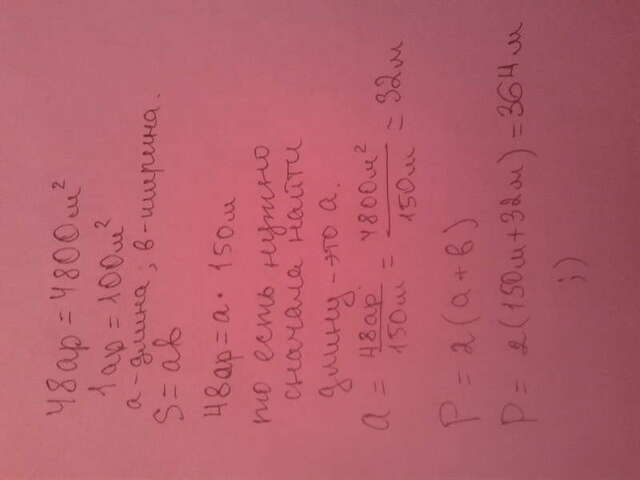 48ар = 4800м²
1ар = 100м²
а - длина ; в - ширина.
S = ав
48ар = а · 150м
то есть нужно
сначала найти
длину - это а.
а = 48ар/150м = 4800м²/150м = 32м
P = 2(а+в)
P = 2(150м+32м) = 364м
;)